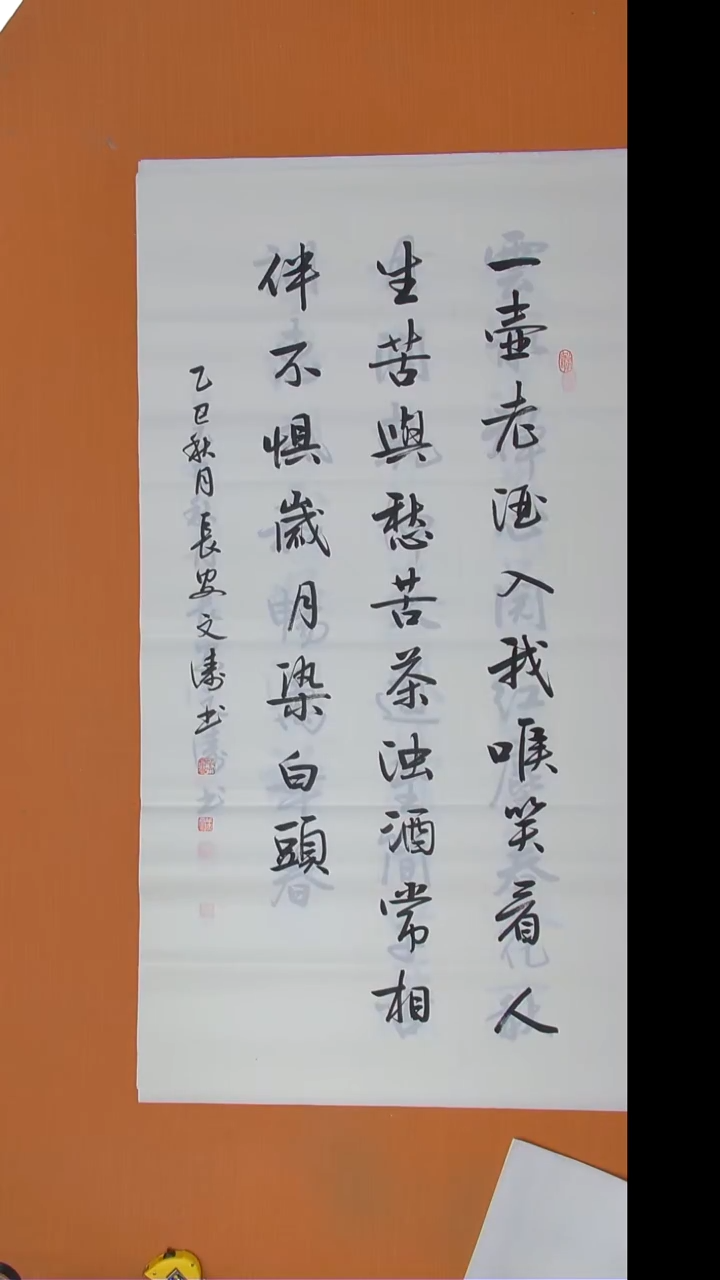 一壺老酒入我喉笑看人
生苦與愁苦茶浊酒常相
伴不惧歲月染白頭
乙巳秋月長安文涛书